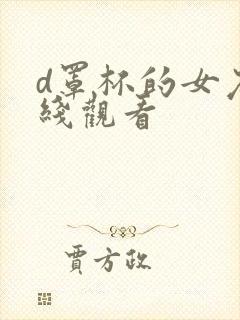 d罩杯的女
綫觀看
賈方政